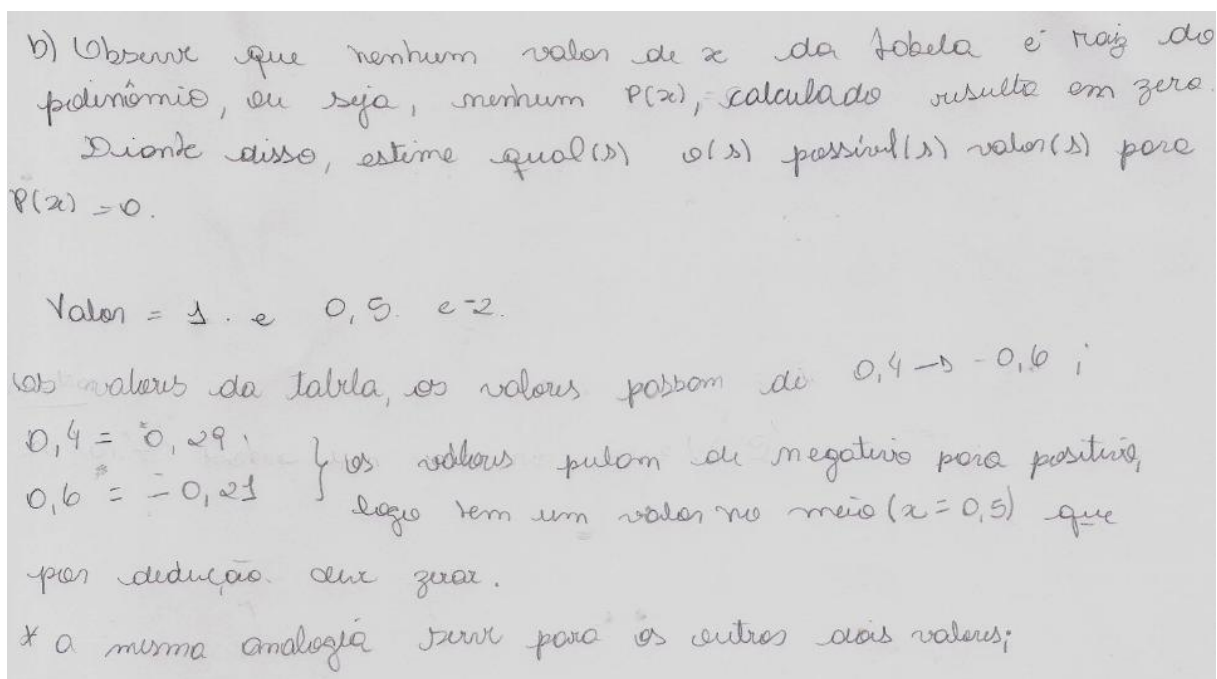 b) Observe que nenhum valor de x da tabela é raiz do
polinômio, ou seja, nenhum P(x), calculado resulta em zero.
Diante disso, estime qual(s) o(s) possível(s) valor(s) para
P(x) = 0.
Valor = 1. e 0,5. e -2.
valores da tabela, os valores passam de 0,4 → -0,6 ;
0,4 = 0,29.
0,6 = -0,21 } os valores pulam de negativo para positivo,
logo tem um valor no meio (x = 0,5) que
por dedução deve zerar.
* a mesma analogia serve para os outros dois valores;